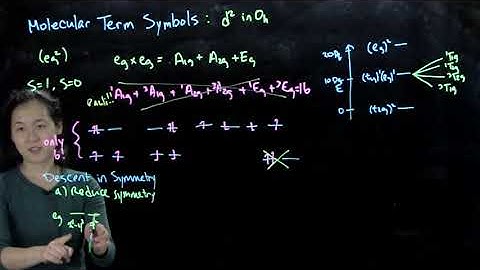 Molecular Term Symbols: d² in Oh
(eg²)
eg x eg = A1g + A2g + Eg
S=1, S=0
¹A1g + ³A1g + ¹A2g + ³A2g + ¹Eg + ³Eg = 16
only
6!
Descent in Symmetry
a) Reduce symmetry
eg
x²-y²
20Dq
(eg)²
10Dq
(t2g)¹(eg)¹
E
0
(t2g)²
¹T1g
¹T2g
³T2g
³T1g